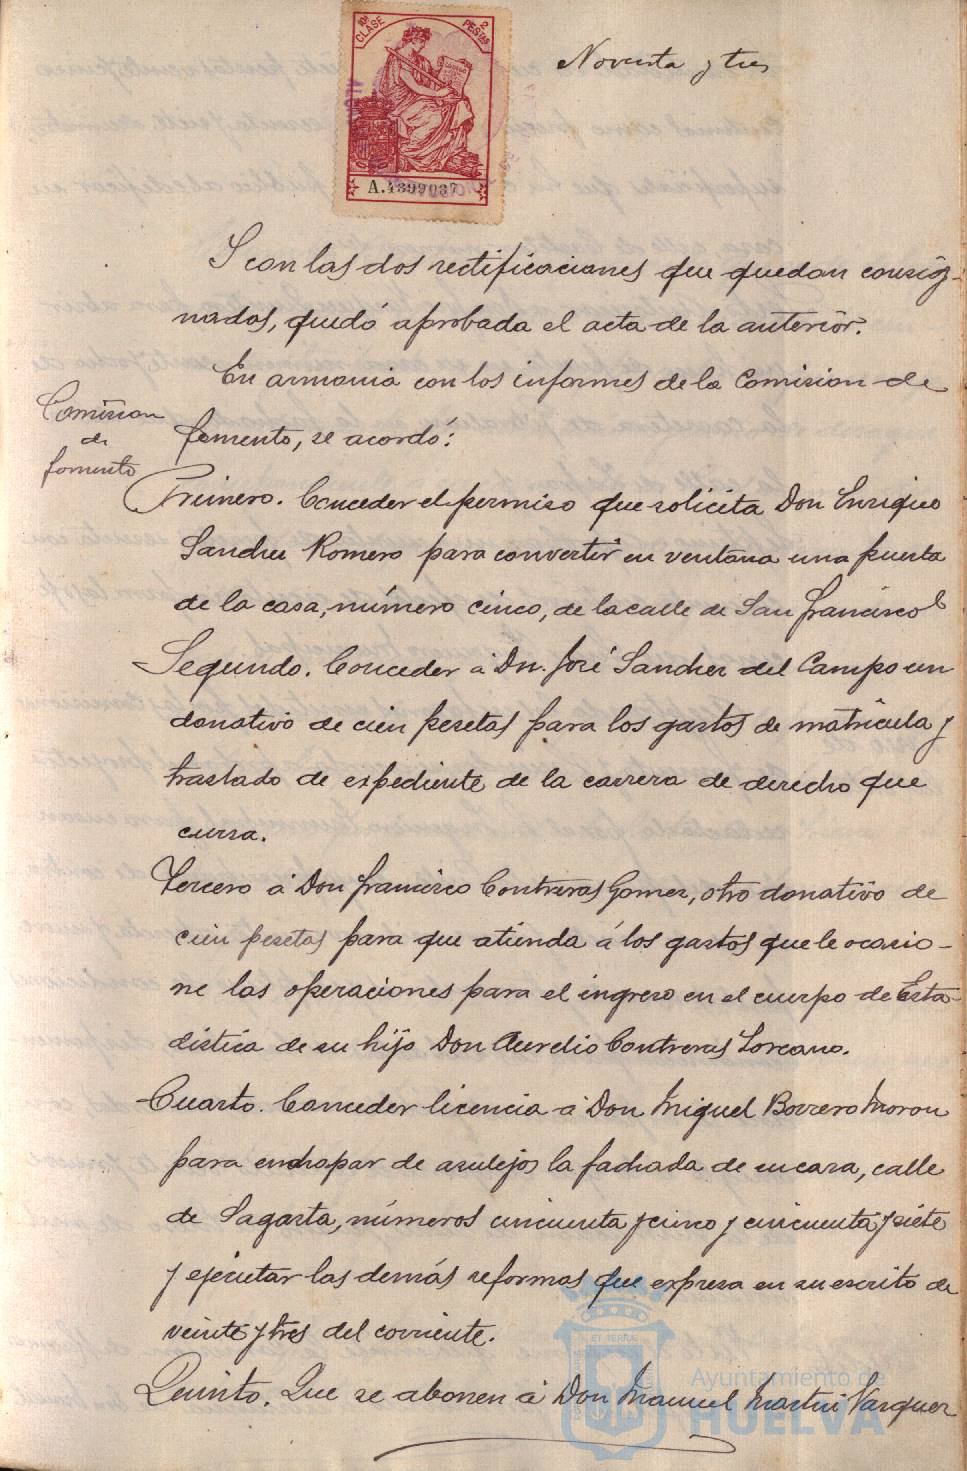 10ª CLASE
2 PESETAS
A.4399037
Noventa y tres
Y con las dos rectificaciones que quedan consig-
nadas, quedó aprobada el acta de la anterior.
En armonia con los informes de la Comision de
fomento, se acordó:
Comision
de
fomento
Primero. Conceder el permiso que solicita Don Enrique
Sanchez Romero para convertir en ventana una puerta
de la casa, número cinco, de la calle de San Francisco
Segundo. Conceder á Dn. José Sanchez del Campo un
donativo de cien pesetas para los gastos de matrícula y
traslado de expediente de la carrera de derecho que
cursa.
Tercero á Don Francisco Contreras Gomez, otro donativo de
cien pesetas para que atienda á los gastos que le ocasio-
ne las operaciones para el ingreso en el cuerpo de Esta-
distica de su hijo Don Aurelio Contreras Lorcano.
Cuarto. Conceder licencia á Don Miguel Borrero Moron
para enchapar de azulejos la fachada de su casa, calle
de Sagasta, números cincuenta y cinco y cincuenta y siete
y ejecutar las demás reformas que expresa en su escrito de
veinte y tres del corriente.
Quinto. Que se abonen á Don Manuel Martin Vazquez
Ayuntamiento de
HUELVA